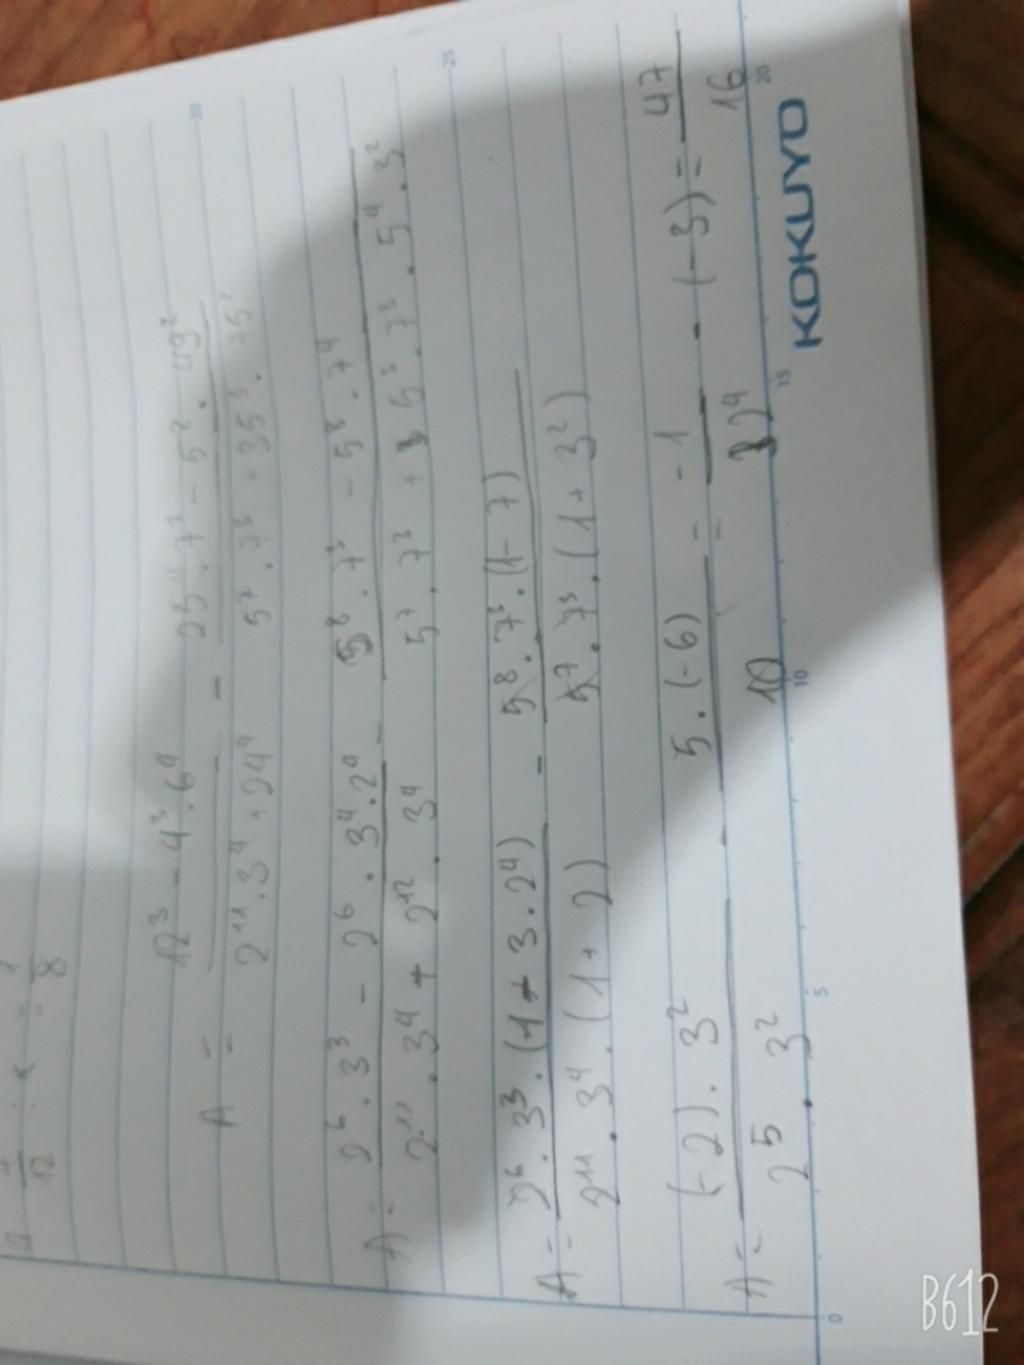 12
8
A = \frac{12^3 - 4^3 . 6^4}{2^{11} . 3^4 + 24^4} - \frac{25^4 . 7^3 - 5^8 . 49^2}{5^7 . 7^3 + 35^3 . 75^2}
A = \frac{2^6 . 3^3 - 2^6 . 3^4 . 2^4}{2^{11} . 3^4 + 2^{12} . 3^4} - \frac{5^8 . 7^3 - 5^8 . 7^4}{5^7 . 7^3 + 5^3 . 7^3 . 5^4 . 3^2}
A = \frac{2^6 . 3^3 . (1 + 3 . 2^4)}{2^{11} . 3^4 . (1 + 2)} - \frac{5^8 . 7^3 . (1 - 7)}{5^7 . 7^3 . (1 + 3^2)}
A = \frac{(-2) . 3^2}{2^5 . 3^2} - \frac{5 . (-6)}{10} = \frac{-1}{2^4} - (-3) = \frac{47}{16}
KOKUYO
0 5 10 15 20
25
30
B612